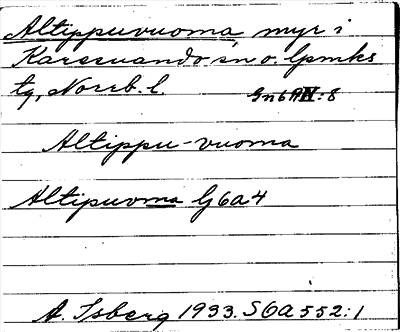 Altippuvuoma, myr i
Karesuando sn o. lpmks
tg, Norrb. l.
Gn6AIV:8
Altippu-vuoma
Altipuvma G6a4
A. Isberg 1933. S6a552:1